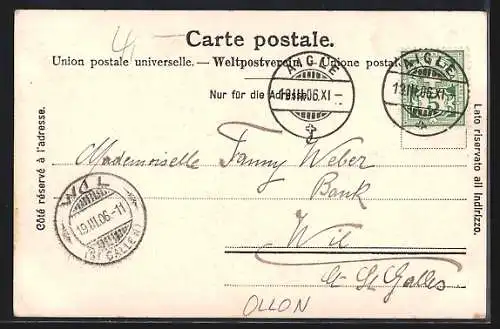 Carte postale.
Union postale universelle. — Weltpostverein. — Unione postale
Nur für die Adresse.
AIGLE
19.III.06.XI
AIGLE
19.III.06.XI
5
Côté réservé à l'adresse.
Lato riservato all indirizzo.
Mademoiselle Fanny Weber
Bank
Wil
Ct. St. Galles
WIL
19.III.06.-11
(ST GALLEN)
OLLON